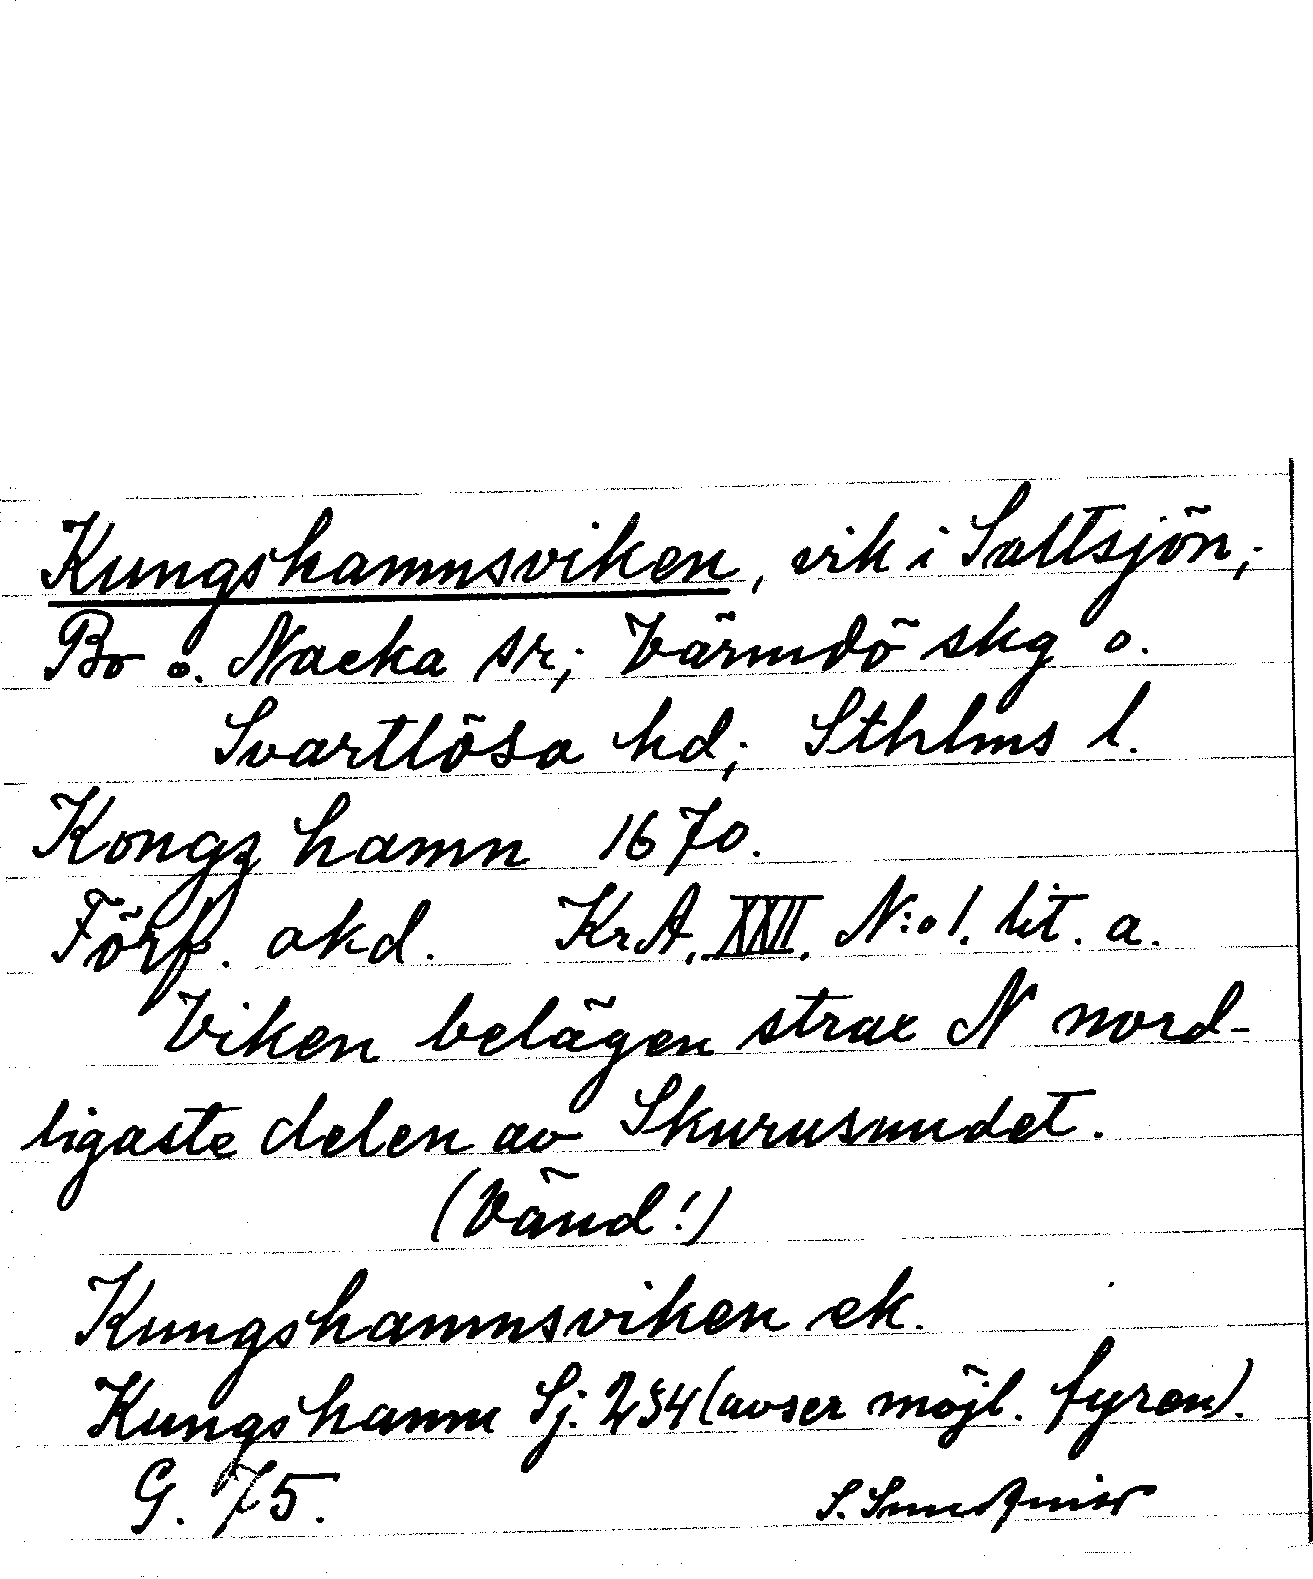 Kungshamnsviken, vik i Saltsjön;
Bo o. Nacka sr; Värmdö skg o.
Svartlösa hd; Sthlms l.
Kongz hamn 1670.
Förf. okd. KrA. XXII. N:o 1. lit. a.
Viken belägen strax N nord-
ligaste delen av Skurusundet.
(Vänd!)
Kungshamnsviken ek.
Kungshamn Sj. 234 (avser möjl. fyren).
G. 75.
S.